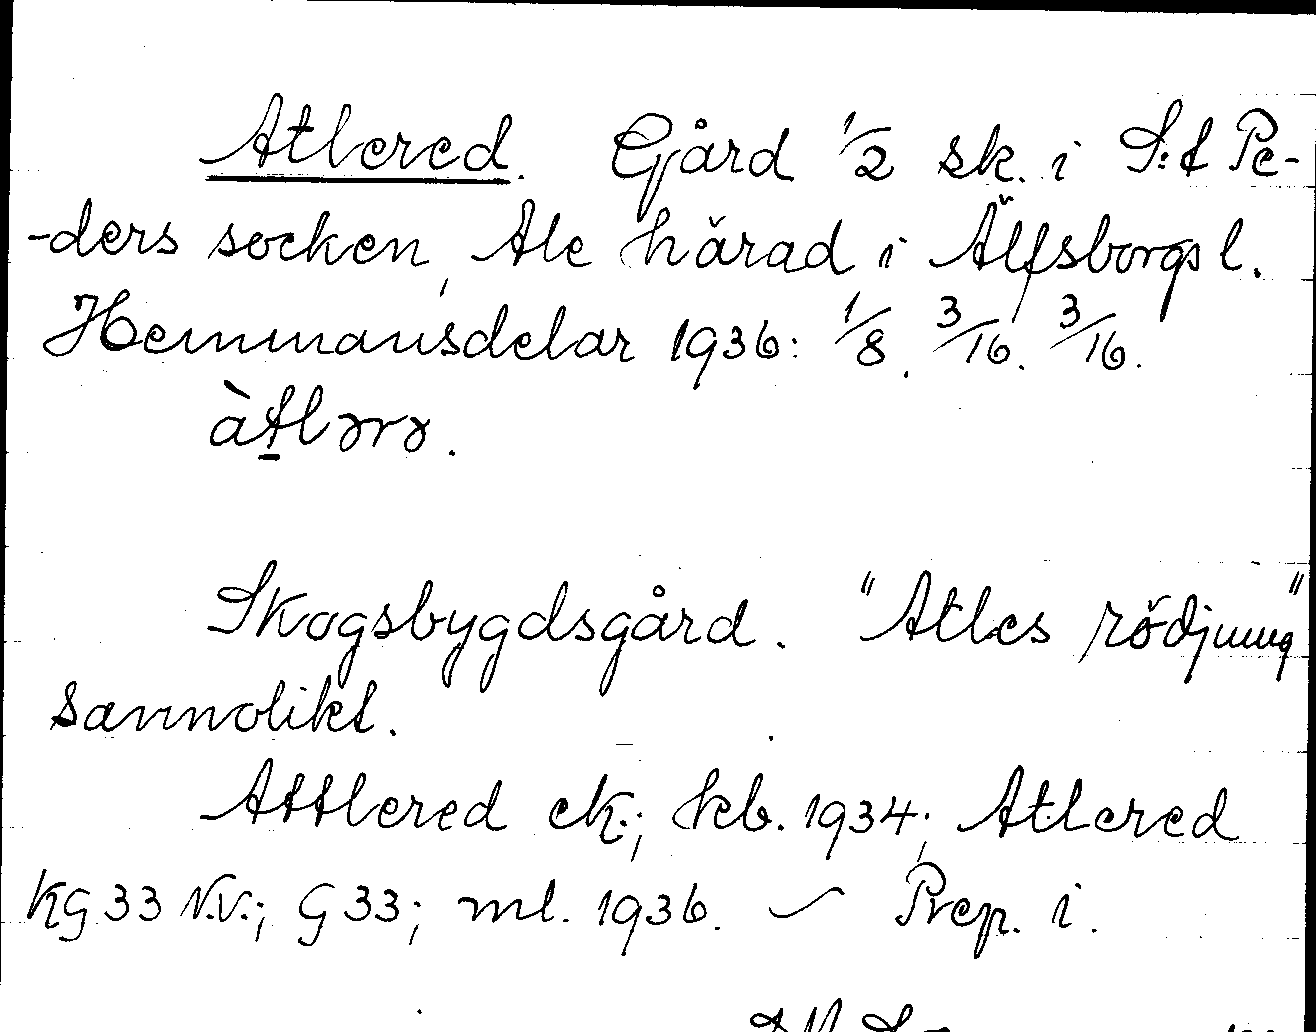 Atlered. Gård 1/2 sk. i S:t Pe-
-ders socken, Ale härad i Älfsborgs l.
Hemmansdelar 1936: 1/8. 3/16. 3/16.
àt̲lərə.
Skogsbygdsgård. "Atles rödjning"
sannolikt.
Attlered ek.; kb. 1934; Atlered
KG 33 N.V.; G 33; ml. 1936. ~ Prep. i.